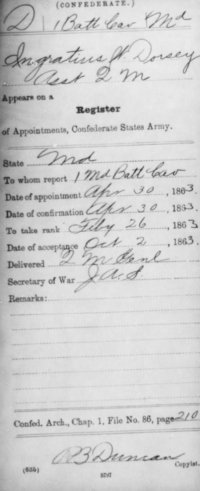 (CONFEDERATE.)
D | 1 Batt Cav | Md
Ingratius W Dorsey
Asst Q M
Appears on a
Register
of Appointments, Confederate States Army.
State Md
To whom report 1 Md Batt Cav
Date of appointment Apr 30, 1863.
Date of confirmation Apr 30, 1863.
To take rank Feby 26, 1863.
Date of acceptance Oct 2, 1863.
Delivered Q M Genl
Secretary of War J. A. S.
Remarks:
Confed. Arch., Chap. 1, File No. 86, page 210
R B Duncan
(635)
Copyist.